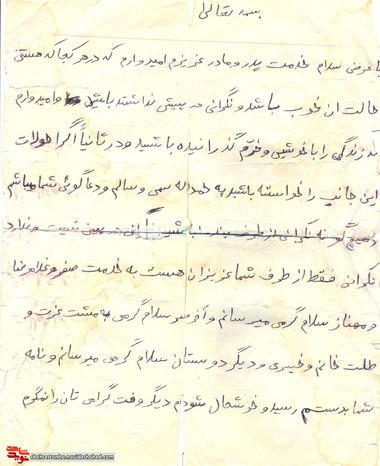 بسمه تعالی
با عرض سلام خدمت پدر و مادر عزیزم امیدوارم که در هر کجا که هستی
حالت ان خوب باشد و نگرانی در پیشی نداشته باشید و امیدوارم
که زندگی را با خوشی و خرّم گذرانیده باشید و در ثانیاً اگر احولات
این جانب را خواسته باشید به حمداله سهی و سالم و دعاگوئی شما میباشم
و هیچ گونه نگرانی از طرف نیست و ندارد
نگرانی فقط از طرف شما عزیزان هست به خدمت صفر و غلامرضا
و مهناز سلام گرمی میرسانم و آخر سر سلام گرمی به مشت عزت و
طلت خانم و خیبری و دیگر دوستان سلام گرمی میرسانم و نامه
شما بدستم رسید و خوشحال شودم دیگر وقت گرامی تان را نمگرم
navideshahed.com